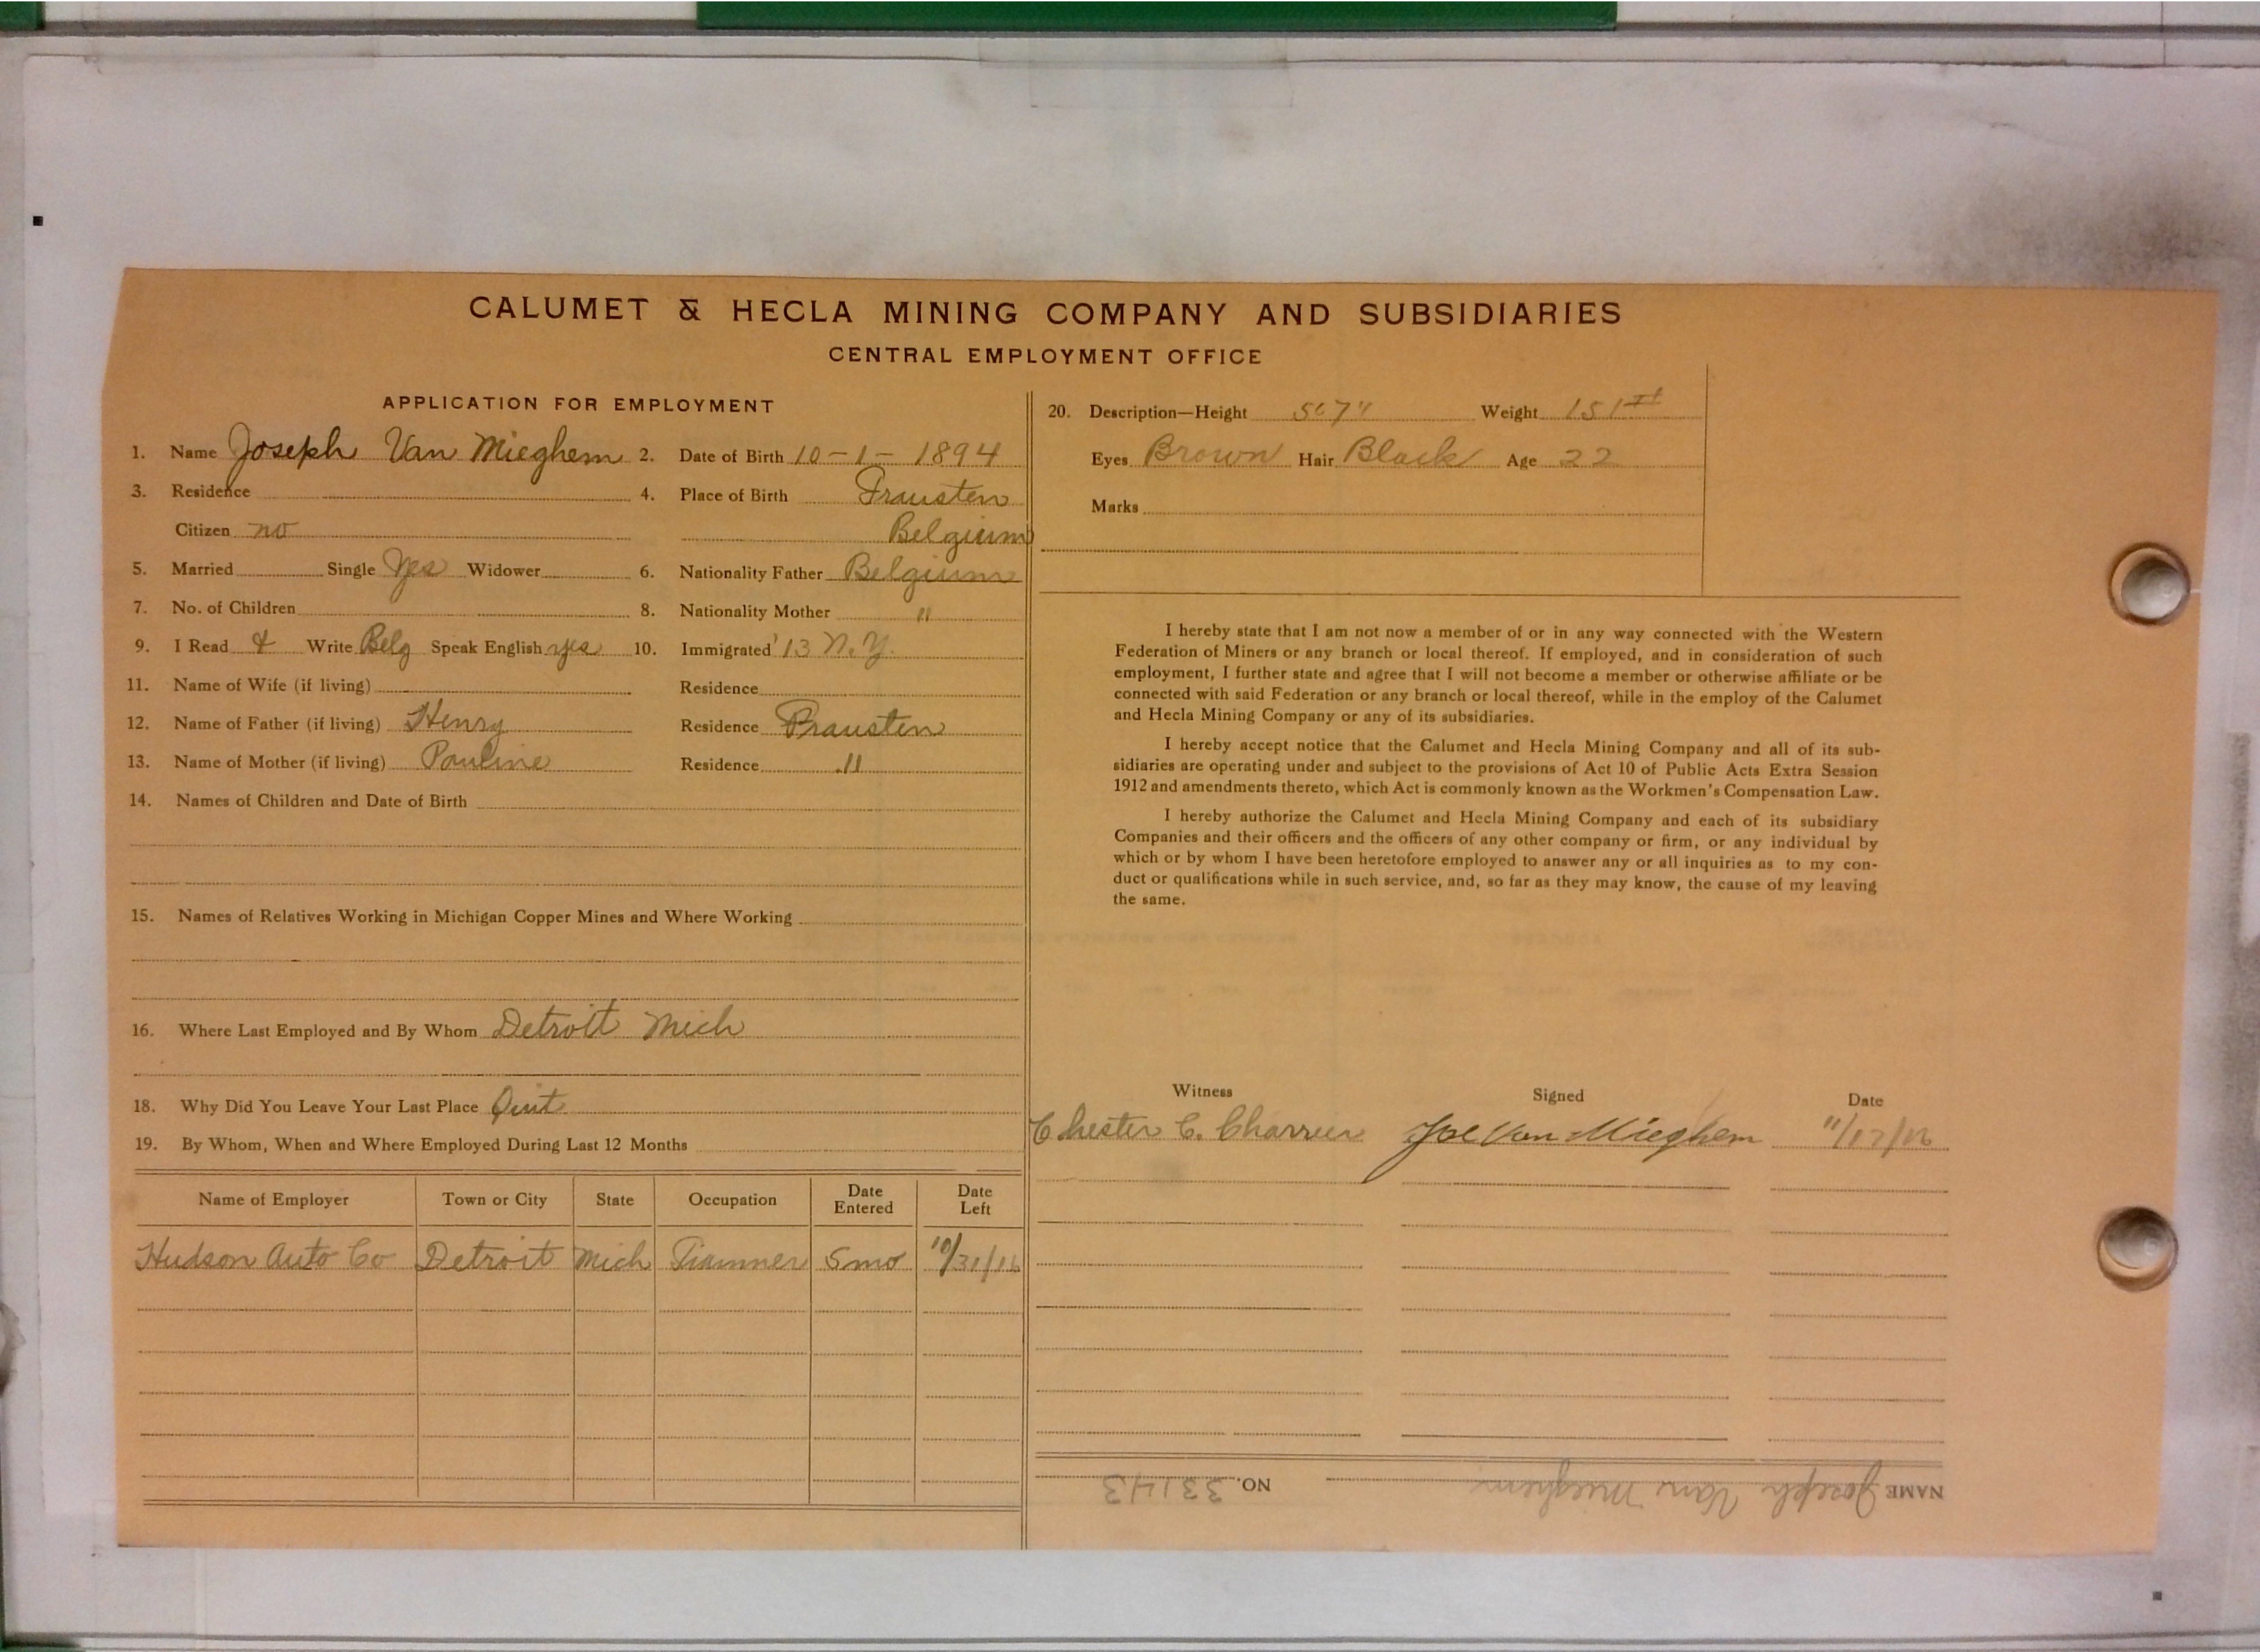 CALUMET & HECLA MINING COMPANY AND SUBSIDIARIES
CENTRAL EMPLOYMENT OFFICE
APPLICATION FOR EMPLOYMENT
1. Name Joseph Van Mieghem 2. Date of Birth 10-1-1894
3. Residence 4. Place of Birth
Citizen no Belgium
5. Married Single Yes Widower 6. Nationality Father Belgium
7. No. of Children 8. Nationality Mother "
9. I Read & Write Belg Speak English yes 10. Immigrated '13 N.Y.
11. Name of Wife (if living) Residence
12. Name of Father (if living) Henry Residence
13. Name of Mother (if living) Pauline Residence "
14. Names of Children and Date of Birth
15. Names of Relatives Working in Michigan Copper Mines and Where Working
16. Where Last Employed and By Whom Detroit Mich
18. Why Did You Leave Your Last Place Quit
19. By Whom, When and Where Employed During Last 12 Months
Name of Employer Town or City State Occupation Date Entered Date Left
Hudson Auto Co Detroit Mich 5 mo 10/31/16
20. Description—Height Weight 151#
Eyes Brown Hair Black Age 22
Marks
I hereby state that I am not now a member of or in any way connected with the Western
Federation of Miners or any branch or local thereof. If employed, and in consideration of such
employment, I further state and agree that I will not become a member or otherwise affiliate or be
connected with said Federation or any branch or local thereof, while in the employ of the Calumet
and Hecla Mining Company or any of its subsidiaries.
I hereby accept notice that the Calumet and Hecla Mining Company and all of its sub-
sidiaries are operating under and subject to the provisions of Act 10 of Public Acts Extra Session
1912 and amendments thereto, which Act is commonly known as the Workmen's Compensation Law.
I hereby authorize the Calumet and Hecla Mining Company and each of its subsidiary
Companies and their officers and the officers of any other company or firm, or any individual by
which or by whom I have been heretofore employed to answer any or all inquiries as to my con-
duct or qualifications while in such service, and, so far as they may know, the cause of my leaving
the same.
Witness Signed Date
Chester C. Joe Van Mieghem 11/17/16
NAME Joseph Van Mieghem NO. 33143